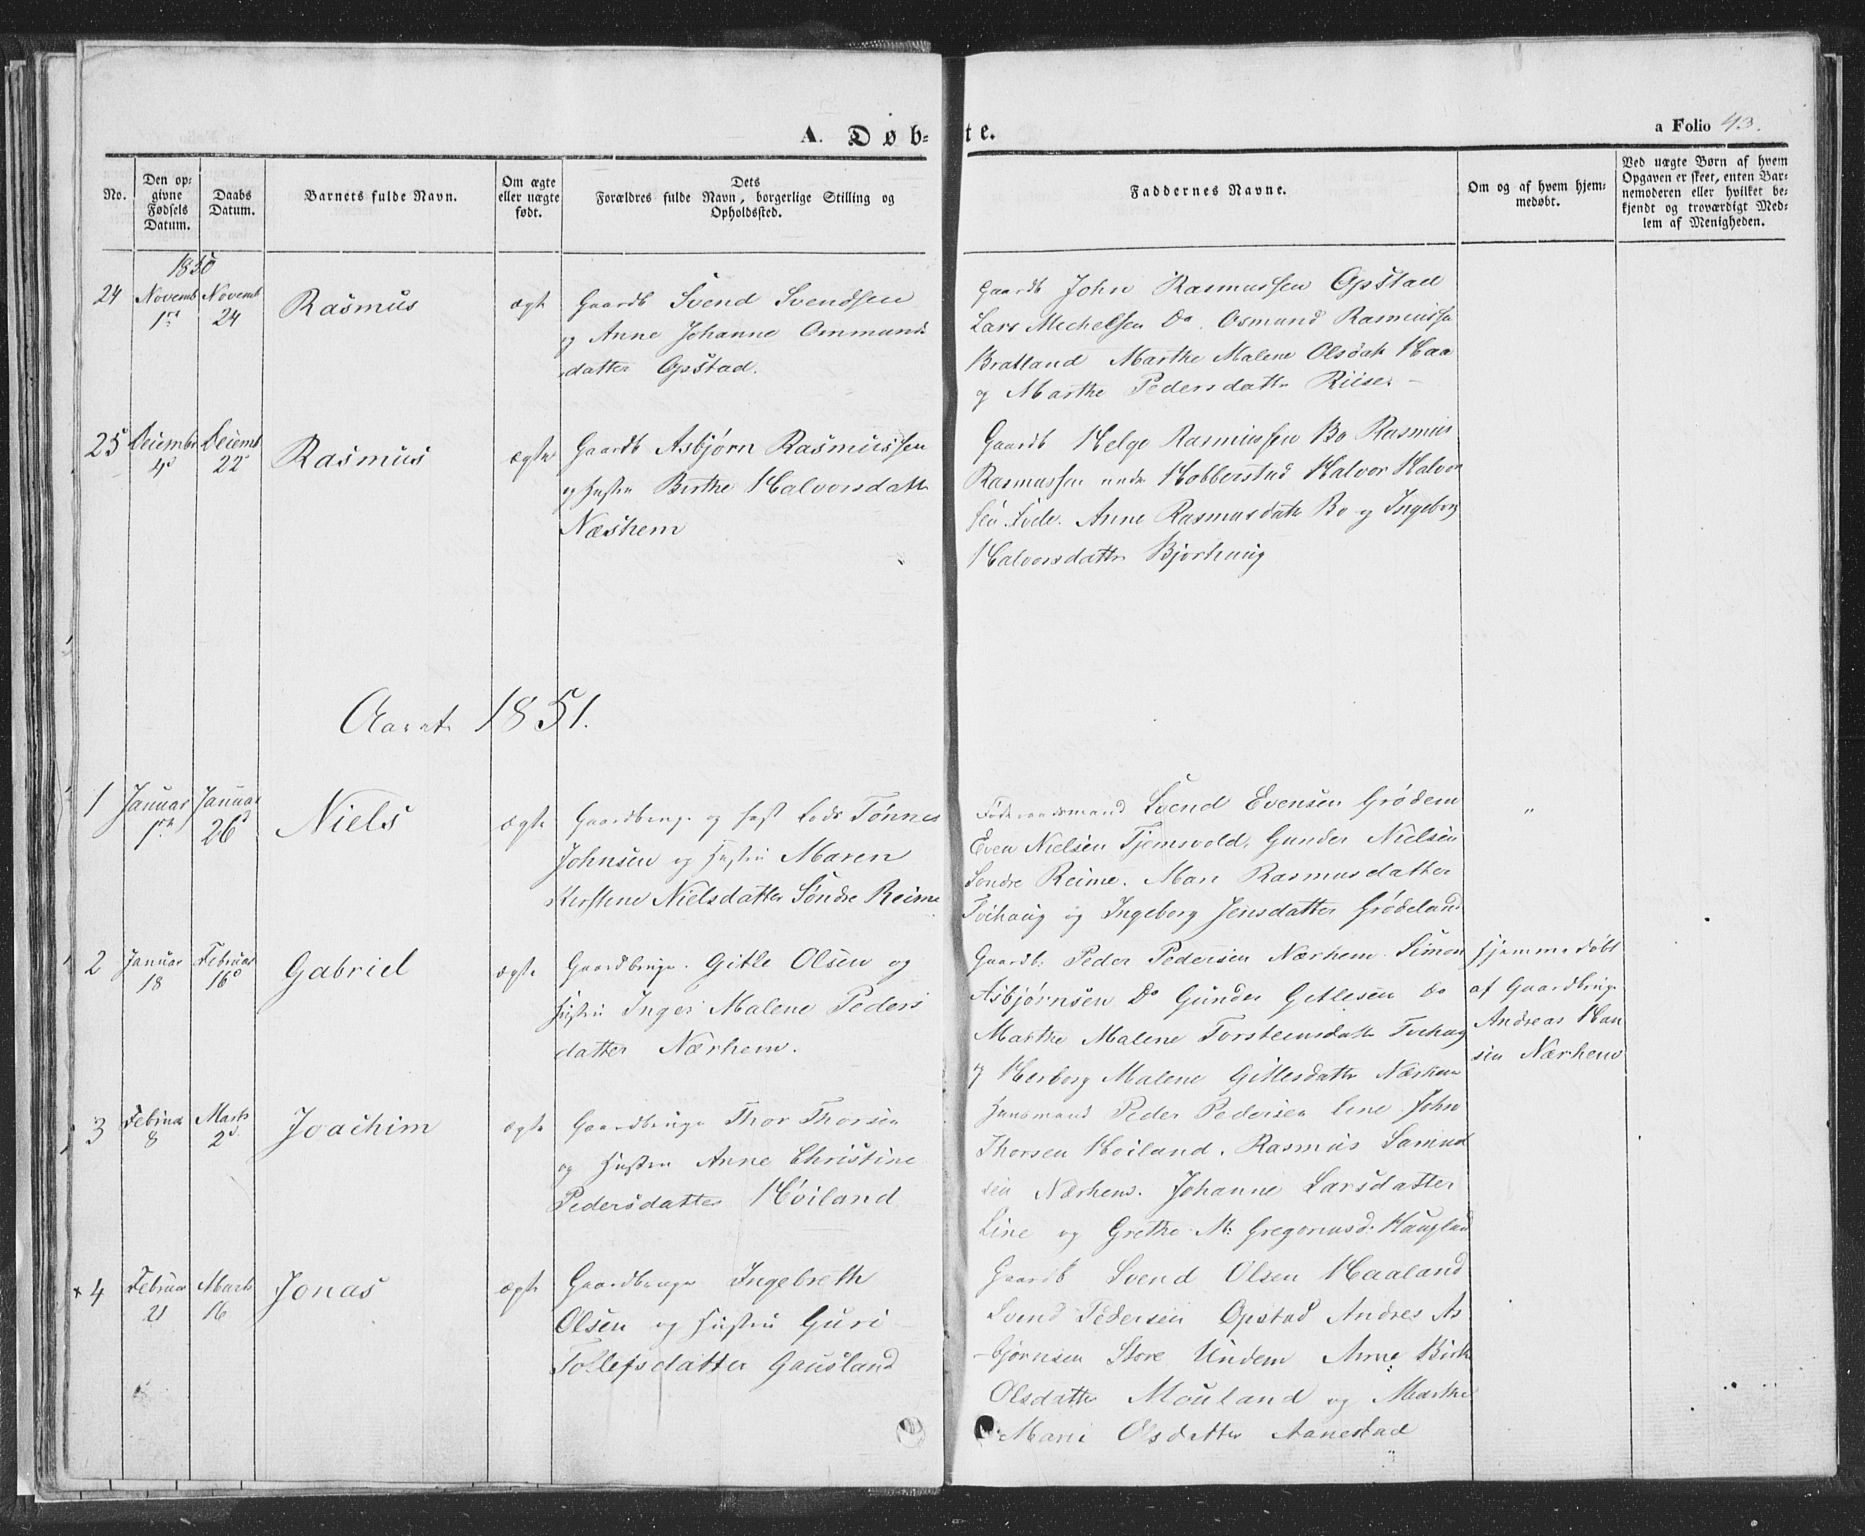 A. Døb=
te.
a Folio 43.
No.
Den op=
givne
Fødsels
Datum.
Daabs
Datum.
Barnets fulde Navn.
Om ægte
eller uægte
født.
Dets
Forældres fulde Navn, borgerlige Stilling og
Opholdssted.
Faddernes Navne.
Om og af hvem hjem=
medøbt.
Ved uægte Børn af hvem
Opgaven er skeet, enten Bar=
nemoderen eller hvilket be=
kjendt og troværdigt Med=
lem af Menigheden.
1850
24
Novemb
Novemb
24
Rasmus
ægt
Gaardb Svend Svendsen
og Anne Johanne Ommund
datter Opstad.
Gaardb John Rasmussen Opstad
Lars Mechelsen Do. Osmund Rasmuss
Bratland Marthe Malene Olsdatr Haa
og Marthe Pedersdattr Riise. -
25
Deiembr
4d
Deiemb
22
Rasmus
ægte
Gaardb Asbjørn Rasmussen
og Hustru Birthe Halvorsdattr
Næshem
Gaardb Helge Rasmussen Bo Rasmus
Rasmussen Hobberstad Halvor Halvor
sen Anne Rasmusdatr Bo og Ingeborg
Halvorsdattr Bjorhaug
Aaret 1851.
1
Januar
Januar
26d
Niels
ægte
Gaardbruge og Tønnes
Johnsen og Hustru Maren
Kirstene Nielsdatter Søndre Reime
Føderaadsmand Svend Evensen Grødem
Even Nielsen Tjemsvold, Gunder Nielsen
Søndre Reime. Mari Rasmusdatter
Tvihaug og Ingeborg Jensdatter Grødeland
"
2
Januar
18
Februar
16d
Gabriel
ægte
Gaardbruge. Gitle Olsen og
Hustru Inger Malene Peders
datter Nærhem.
Gaardb. Peder Pedersen Nærhem Simon
Asbjørnsen Do Gunder Gitlesen do
Marthe Malene Torsteinsdatr Tvihaug
og Herborg Malene Gitlesdattr Nærhem
Hjemmedøbt
af Gaardbruge
Andreas Han
sen Nærhem
3
Februar
8
Marts
2d
Joachim
ægte
Gaardbruge Thor Thorsen
og Hustru Anne Christine
Pedersdatter Høiland
Huusmand Peder Pedersen Line John
Thorsen Høiland. Rasmus Samuel
sen Nærhem. Johanne Larsdatter
Line og Grethe M: Gregoriusd: Haugland
× 4
Februar
21
Marts
16
Jonas
ægte
Gaardbruge Ingebreth
Olsen og Hustru Guri
Tollefsdatter Gausland
Gaardb Svend Olsen Haaland
Svend Pedersen Opstad Andres As
bjørnsen Store Undem Anne Birthe
Olsdattr Mouland og Marthe
Marie Olsdatter Aanestad